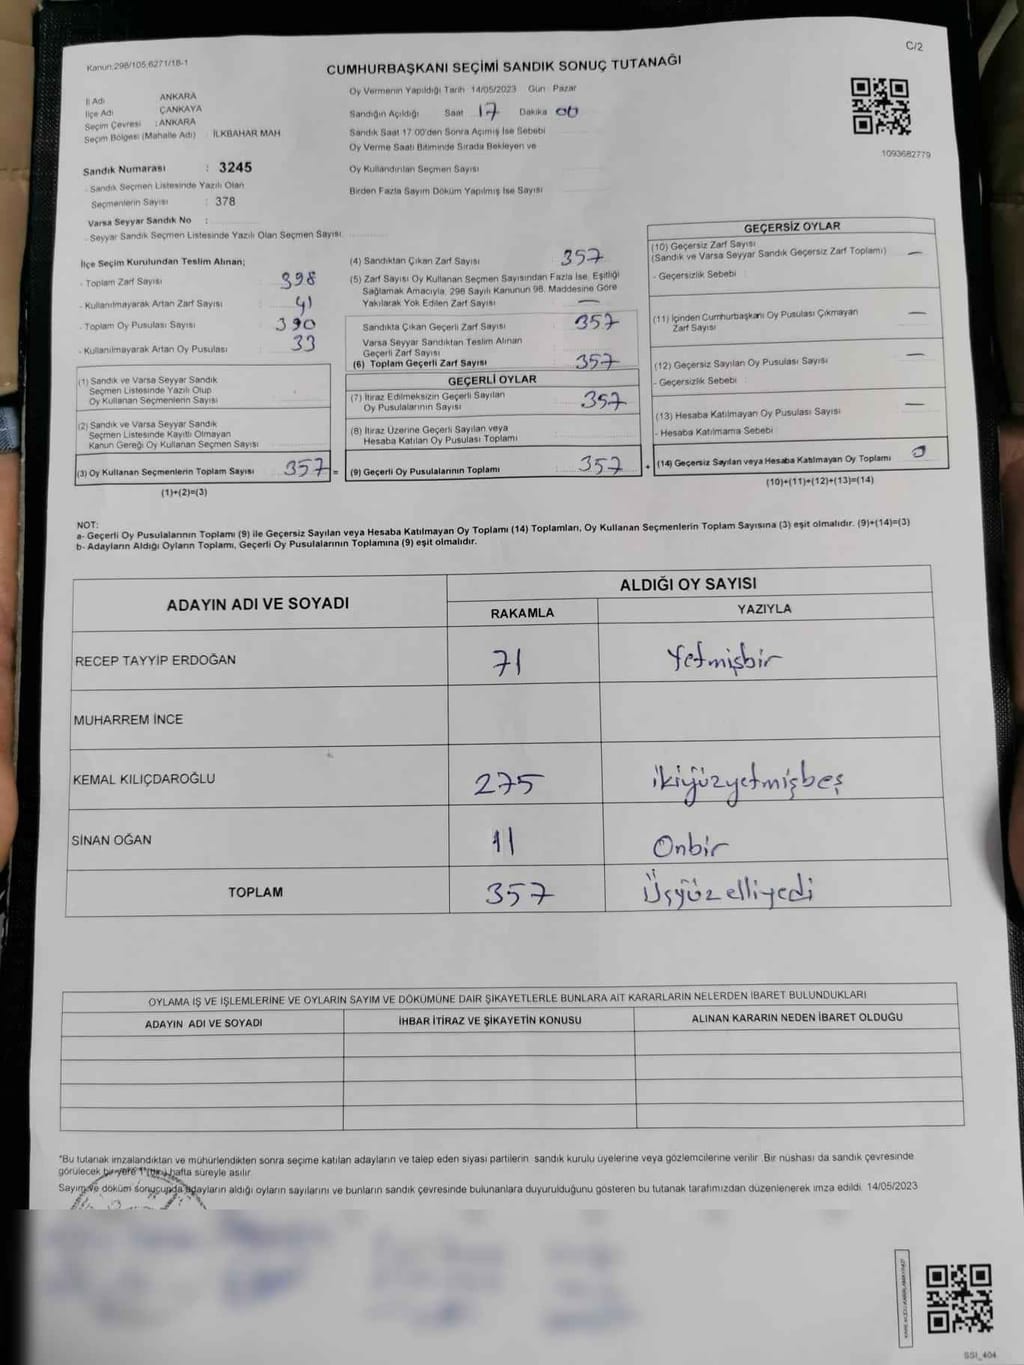 C/2
Kanun:298/105;6271/18-1
CUMHURBAŞKANI SEÇİMİ SANDIK SONUÇ TUTANAĞI
İl Adı ANKARA
İlçe Adı ÇANKAYA
Seçim Çevresi : ANKARA
Seçim Bölgesi (Mahalle Adı) : İLKBAHAR MAH
Sandık Numarası : 3245
- Sandık Seçmen Listesinde Yazılı Olan
Seçmenlerin Sayısı : 378
Varsa Seyyar Sandık No :
- Seyyar Sandık Seçmen Listesinde Yazılı Olan Seçmen Sayısı:
Oy Vermenin Yapıldığı Tarih 14/05/2023 Gün Pazar
Sandığın Açıldığı Saat 17 Dakika 00
Sandık Saat 17:00'den Sonra Açılmış İse Sebebi
Oy Verme Saati Bitiminde Sırada Bekleyen ve
Oy Kullandırılan Seçmen Sayısı
Birden Fazla Sayım Döküm Yapılmış İse Sayısı
1093682779
İlçe Seçim Kurulundan Teslim Alınan;
- Toplam Zarf Sayısı 398
- Kullanılmayarak Artan Zarf Sayısı 41
- Toplam Oy Pusulası Sayısı 390
- Kullanılmayarak Artan Oy Pusulası 33
(1) Sandık ve Varsa Seyyar Sandık
Seçmen Listesinde Yazılı Olup
Oy Kullanan Seçmenlerin Sayısı
(2) Sandık ve Varsa Seyyar Sandık
Seçmen Listesinde Kayıtlı Olmayan
Kanun Gereği Oy Kullanan Seçmen Sayısı
(3) Oy Kullanan Seçmenlerin Toplam Sayısı 357 =
(1)+(2)=(3)
(4) Sandıktan Çıkan Zarf Sayısı 357
(5) Zarf Sayısı Oy Kullanan Seçmen Sayısından Fazla İse, Eşitliği
Sağlamak Amacıyla, 298 Sayılı Kanunun 98. Maddesine Göre
Yakılarak Yok Edilen Zarf Sayısı —
Sandıkta Çıkan Geçerli Zarf Sayısı 357
Varsa Seyyar Sandıktan Teslim Alınan
Geçerli Zarf Sayısı
(6) Toplam Geçerli Zarf Sayısı 357
GEÇERLİ OYLAR
(7) İtiraz Edilmeksizin Geçerli Sayılan
Oy Pusulalarının Sayısı 357
(8) İtiraz Üzerine Geçerli Sayılan veya
Hesaba Katılan Oy Pusulası Toplamı
(9) Geçerli Oy Pusulalarının Toplamı 357 +
GEÇERSİZ OYLAR
(10) Geçersiz Zarf Sayısı
(Sandık ve Varsa Seyyar Sandık Geçersiz Zarf Toplamı) —
- Geçersizlik Sebebi
(11) İçinden Cumhurbaşkanı Oy Pusulası Çıkmayan
Zarf Sayısı —
(12) Geçersiz Sayılan Oy Pusulası Sayısı —
- Geçersizlik Sebebi :
(13) Hesaba Katılmayan Oy Pusulası Sayısı —
- Hesaba Katılmama Sebebi :
(14) Geçersiz Sayılan veya Hesaba Katılmayan Oy Toplamı 0
(10)+(11)+(12)+(13)=(14)
NOT:
a- Geçerli Oy Pusulalarının Toplamı (9) ile Geçersiz Sayılan veya Hesaba Katılmayan Oy Toplamı (14) Toplamları, Oy Kullanan Seçmenlerin Toplam Sayısına (3) eşit olmalıdır. (9)+(14)=(3)
b- Adayların Aldığı Oyların Toplamı, Geçerli Oy Pusulalarının Toplamına (9) eşit olmalıdır.
ADAYIN ADI VE SOYADI
ALDIĞI OY SAYISI
RAKAMLA YAZIYLA
RECEP TAYYİP ERDOĞAN 71 Yetmişbir
MUHARREM İNCE
KEMAL KILIÇDAROĞLU 275 ikiyüzyetmişbeş
SİNAN OĞAN 11 Onbir
TOPLAM 357 Üçyüzelliyedi
OYLAMA İŞ VE İŞLEMLERİNE VE OYLARIN SAYIM VE DÖKÜMÜNE DAİR ŞİKAYETLERLE BUNLARA AİT KARARLARIN NELERDEN İBARET BULUNDUKLARI
ADAYIN ADI VE SOYADI İHBAR İTİRAZ VE ŞİKAYETİN KONUSU ALINAN KARARIN NEDEN İBARET OLDUĞU
*Bu tutanak imzalandıktan ve mühürlendikten sonra seçime katılan adayların ve talep eden siyasi partilerin sandık kurulu üyelerine veya gözlemcilerine verilir. Bir nüshası da sandık çevresinde
görülecek bir yere 1 (bir) hafta süreyle asılır.
Sayım ve döküm sonucunda adayların aldığı oyların sayılarını ve bunların sandık çevresinde bulunanlara duyurulduğunu gösteren bu tutanak tarafımızdan düzenlenerek imza edildi. 14/05/2023
SSI_404